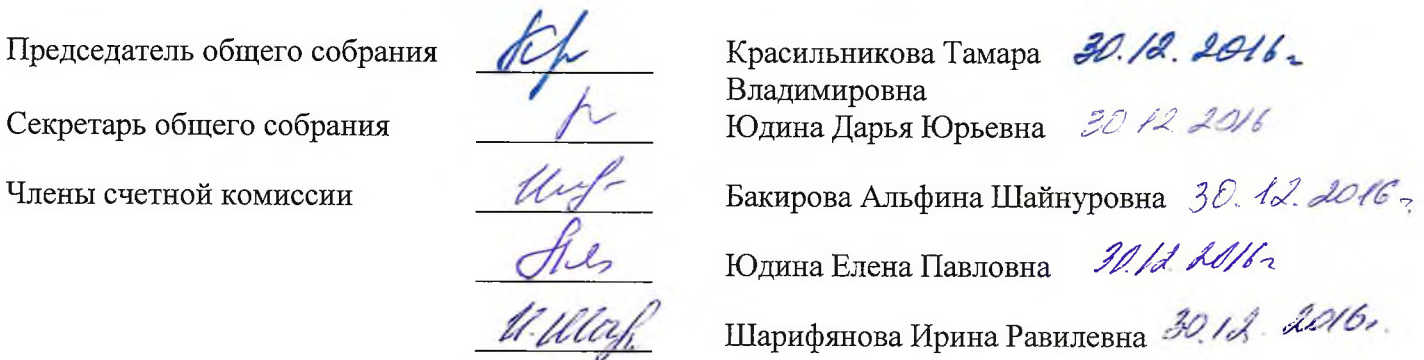 Председатель общего собрания Красильникова Тамара 30.12.2016г
Владимировна
Секретарь общего собрания Юдина Дарья Юрьевна 30 12 2016
Члены счетной комиссии Бакирова Альфина Шайнуровна 30.12.2016г
Юдина Елена Павловна 30.12 2016г
Шарифянова Ирина Равилевна 30.12.2016г.